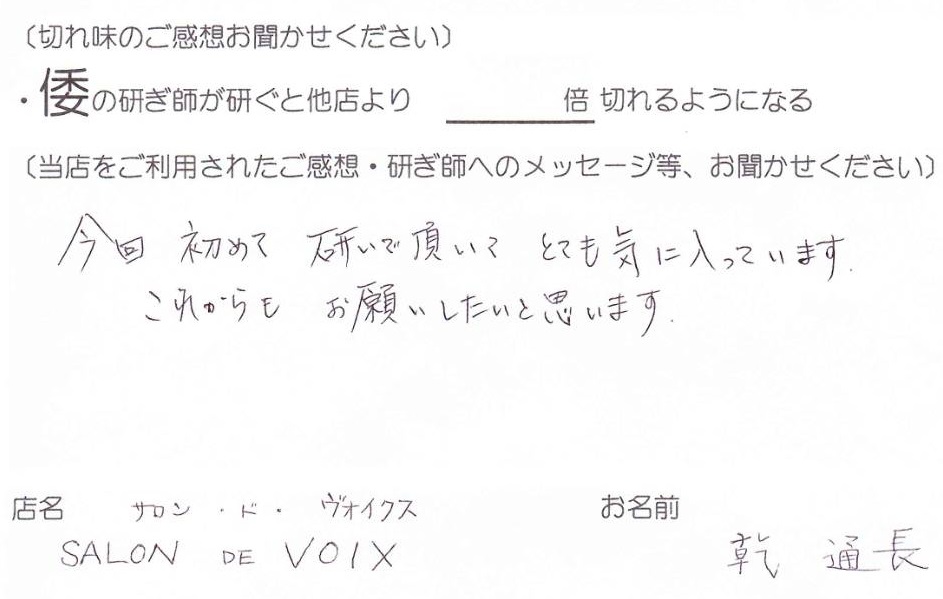 〔切れ味のご感想お聞かせください〕
・倭の研ぎ師が研ぐと他店より 倍 切れるようになる
〔当店をご利用されたご感想・研ぎ師へのメッセージ等、お聞かせください〕
今回 初めて 研いで頂いて とても気に入っています.
これからも お願いしたいと思います.
店名 サロン・ド・ヴォイクス お名前
SALON DE VOIX 乾 通長